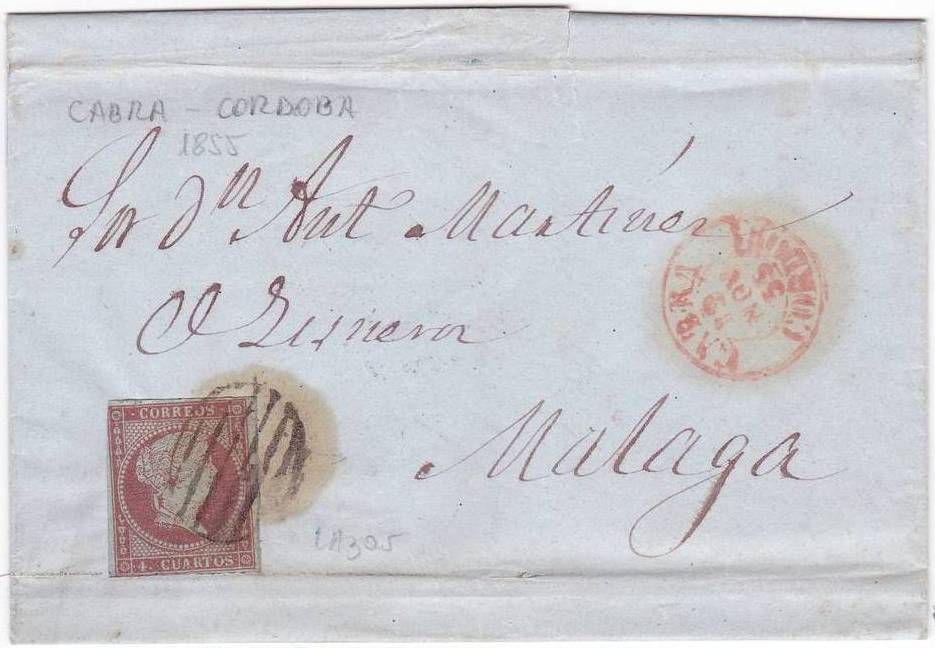 CABRA - CORDOBA
1855
Sor dn Ant Martinez
Cisneros
Malaga
CABRA CORDOBA
55
NOV
CORREOS
4. CUARTOS
LAZOS